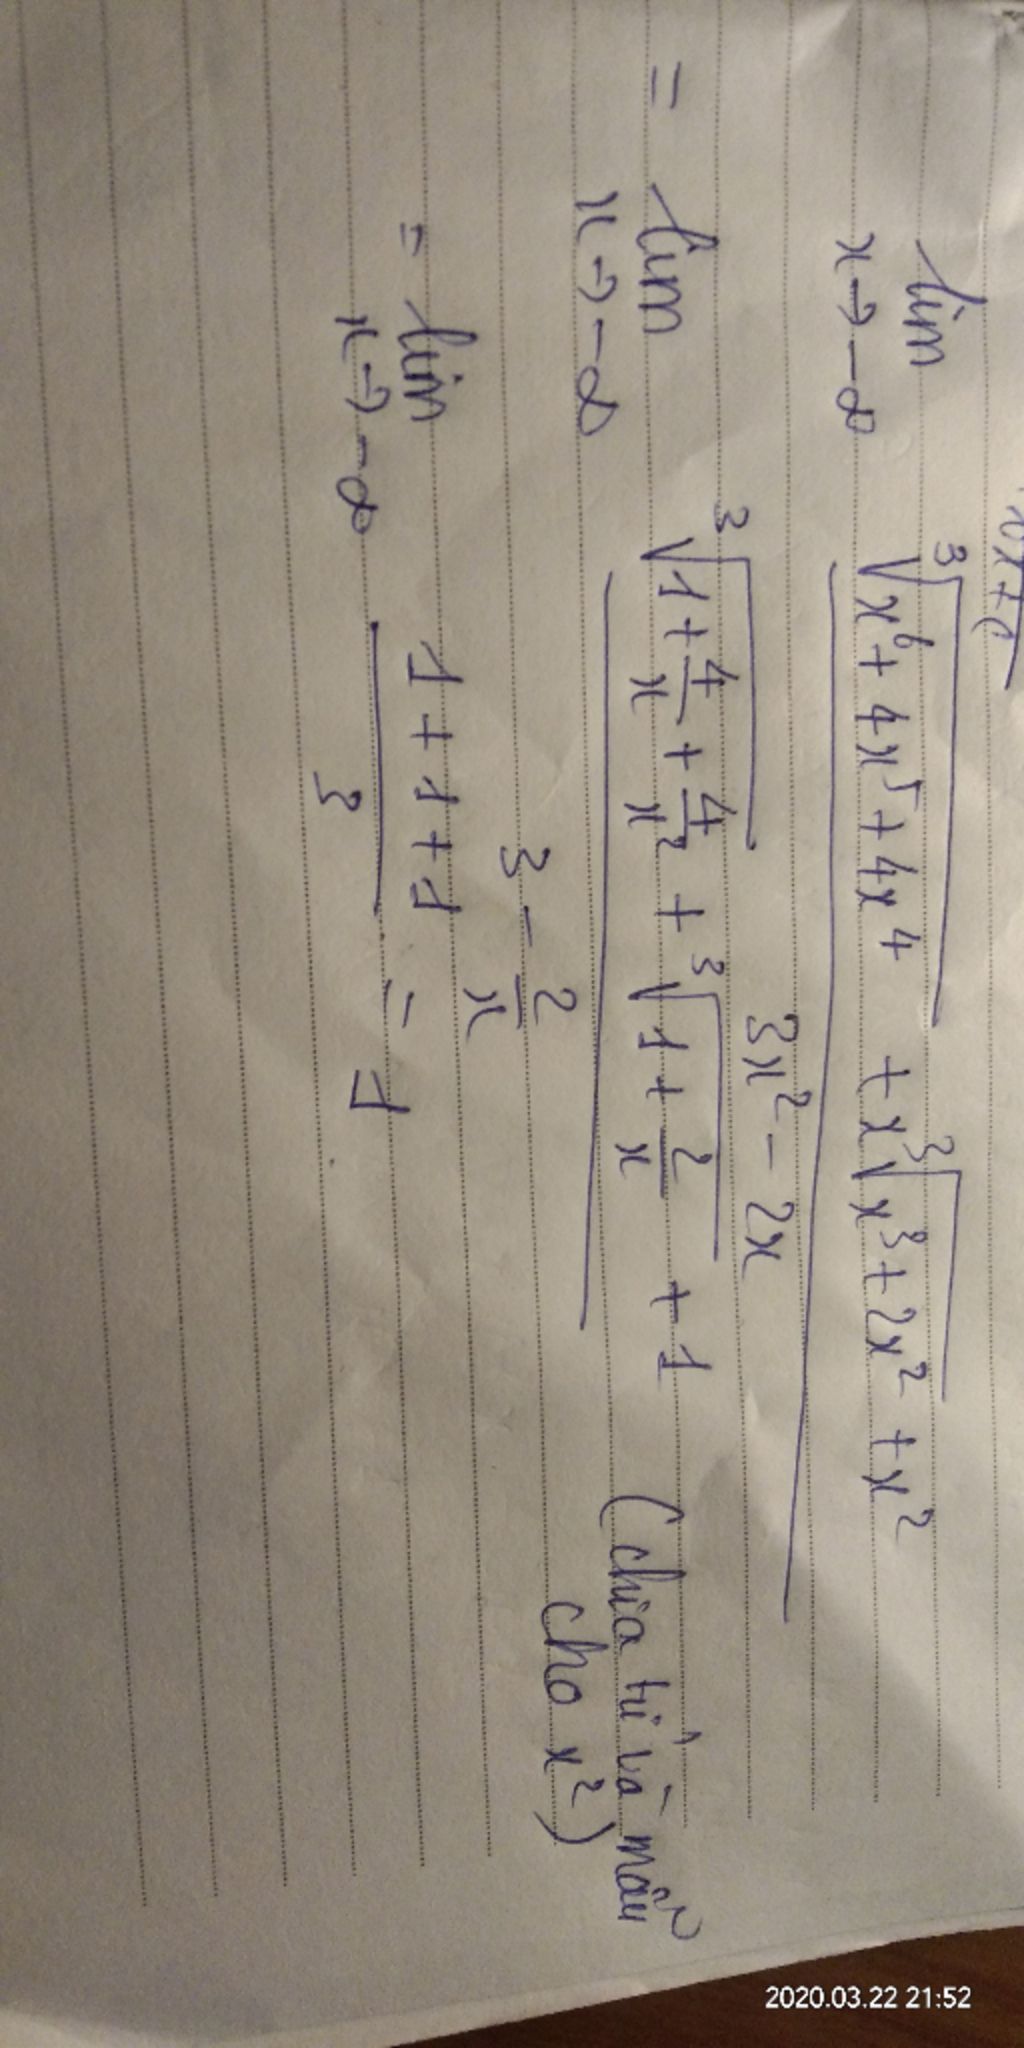 lim x→-∞ (∛(x⁶ + 4x⁵ + 4x⁴) + x∛(x³ + 2x²) + x²) / (3x² - 2x)
= lim x→-∞ (∛(1 + 4/x + 4/x²) + ∛(1 + 2/x) + 1) / (3 - 2/x) (chia tử và mẫu
cho x²)
= lim x→-∞ (1 + 1 + 1) / 3 = 1
2020.03.22 21:52